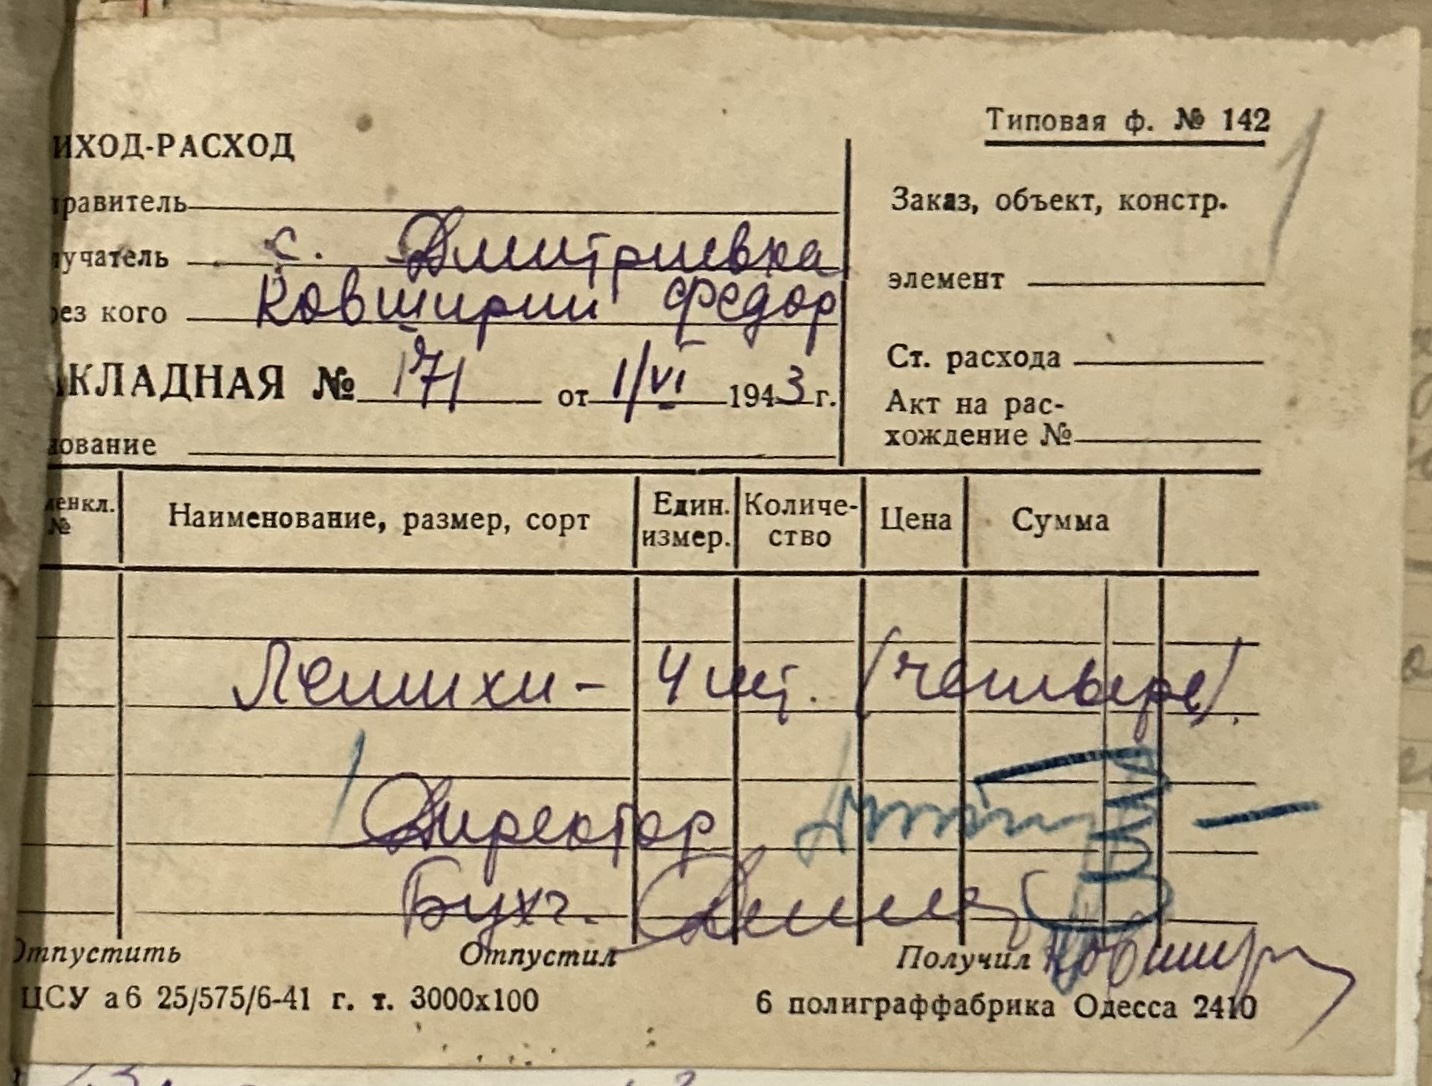 ИХОД-РАСХОД
Типовая ф. № 142
равитель
Заказ, объект, констр.
учатель с. Дмитриевка
элемент
ез кого Ковширин Федор
Ст. расхода
КЛАДНАЯ № 171 от 1/VI 1943 г.
Акт на рас-
хождение №
ование
енкл. №
Наименование, размер, сорт
Един. измер.
Количе- ство
Цена
Сумма
Лемихи - 4 шт. (четыре).
Директор
Бухг.
Отпустить
Отпустил
Получил
ЦСУ а6 25/575/6-41 г. т. 3000х100
6 полиграффабрика Одесса 2410